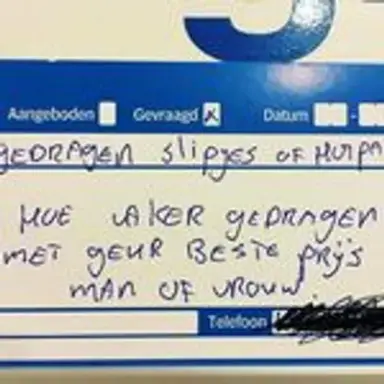 Aangeboden Gevraagd x Datum -
GEDRAGEN slipjes OF
HOE VAKER GEDRAGEN
MET GEUR BESTE PRIJS
MAN OF VROUW
Telefoon